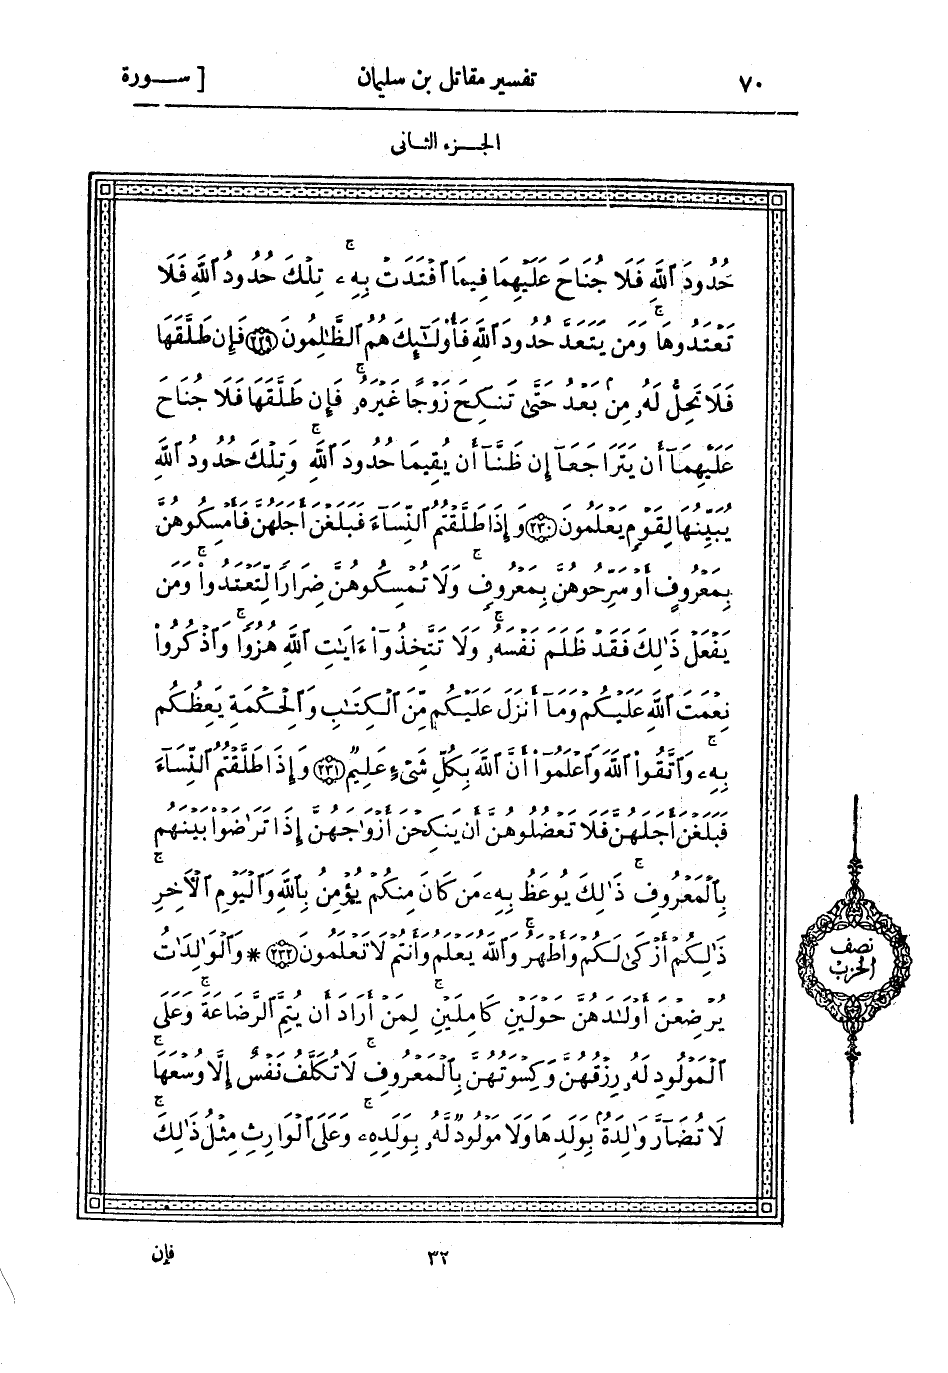 ٧٠ تفسير مقاتل بن سليمان [ ســورة
الجـزء الثانى
حُدُودَ ٱللَّهِ فَلَا جُنَاحَ عَلَيْهِمَا فِيمَا ٱفْتَدَتْ بِهِۦ ۚ تِلْكَ حُدُودُ ٱللَّهِ فَلَا
تَعْتَدُوهَا ۚ وَمَن يَتَعَدَّ حُدُودَ ٱللَّهِ فَأُولَـٰٓئِكَ هُمُ ٱلظَّـٰلِمُونَ ﴿٢٢٩﴾ فَإِن طَلَّقَهَا
فَلَا تَحِلُّ لَهُۥ مِنۢ بَعْدُ حَتَّىٰ تَنكِحَ زَوْجًا غَيْرَهُۥ ۗ فَإِن طَلَّقَهَا فَلَا جُنَاحَ
عَلَيْهِمَآ أَن يَتَرَاجَعَآ إِن ظَنَّآ أَن يُقِيمَا حُدُودَ ٱللَّهِ ۚ وَتِلْكَ حُدُودُ ٱللَّهِ
يُبَيِّنُهَا لِقَوْمٍ يَعْلَمُونَ ﴿٢٣٠﴾ وَإِذَا طَلَّقْتُمُ ٱلنِّسَآءَ فَبَلَغْنَ أَجَلَهُنَّ فَأَمْسِكُوهُنَّ
بِمَعْرُوفٍ أَوْ سَرِّحُوهُنَّ بِمَعْرُوفٍ ۚ وَلَا تُمْسِكُوهُنَّ ضِرَارًا لِّتَعْتَدُوا۟ ۚ وَمَن
يَفْعَلْ ذَٰلِكَ فَقَدْ ظَلَمَ نَفْسَهُۥ ۚ وَلَا تَتَّخِذُوٓا۟ ءَايَـٰتِ ٱللَّهِ هُزُوًا ۚ وَٱذْكُرُوا۟
نِعْمَتَ ٱللَّهِ عَلَيْكُمْ وَمَآ أَنزَلَ عَلَيْكُم مِّنَ ٱلْكِتَـٰبِ وَٱلْحِكْمَةِ يَعِظُكُم
بِهِۦ ۚ وَٱتَّقُوا۟ ٱللَّهَ وَٱعْلَمُوٓا۟ أَنَّ ٱللَّهَ بِكُلِّ شَىْءٍ عَلِيمٌ ﴿٢٣١﴾ وَإِذَا طَلَّقْتُمُ ٱلنِّسَآءَ
فَبَلَغْنَ أَجَلَهُنَّ فَلَا تَعْضُلُوهُنَّ أَن يَنكِحْنَ أَزْوَٰجَهُنَّ إِذَا تَرَٰضَوْا۟ بَيْنَهُم
بِٱلْمَعْرُوفِ ۗ ذَٰلِكَ يُوعَظُ بِهِۦ مَن كَانَ مِنكُمْ يُؤْمِنُ بِٱللَّهِ وَٱلْيَوْمِ ٱلْـَٔاخِرِ ۗ
ذَٰلِكُمْ أَزْكَىٰ لَكُمْ وَأَطْهَرُ ۗ وَٱللَّهُ يَعْلَمُ وَأَنتُمْ لَا تَعْلَمُونَ ﴿٢٣٢﴾ * وَٱلْوَٰلِدَٰتُ
يُرْضِعْنَ أَوْلَـٰدَهُنَّ حَوْلَيْنِ كَامِلَيْنِ ۖ لِمَنْ أَرَادَ أَن يُتِمَّ ٱلرَّضَاعَةَ ۚ وَعَلَى
ٱلْمَوْلُودِ لَهُۥ رِزْقُهُنَّ وَكِسْوَتُهُنَّ بِٱلْمَعْرُوفِ ۚ لَا تُكَلَّفُ نَفْسٌ إِلَّا وُسْعَهَا ۚ
لَا تُضَآرَّ وَٰلِدَةٌۢ بِوَلَدِهَا وَلَا مَوْلُودٌ لَّهُۥ بِوَلَدِهِۦ ۚ وَعَلَى ٱلْوَارِثِ مِثْلُ ذَٰلِكَ ۗ
نصف
الحزب
٣٢ فإن